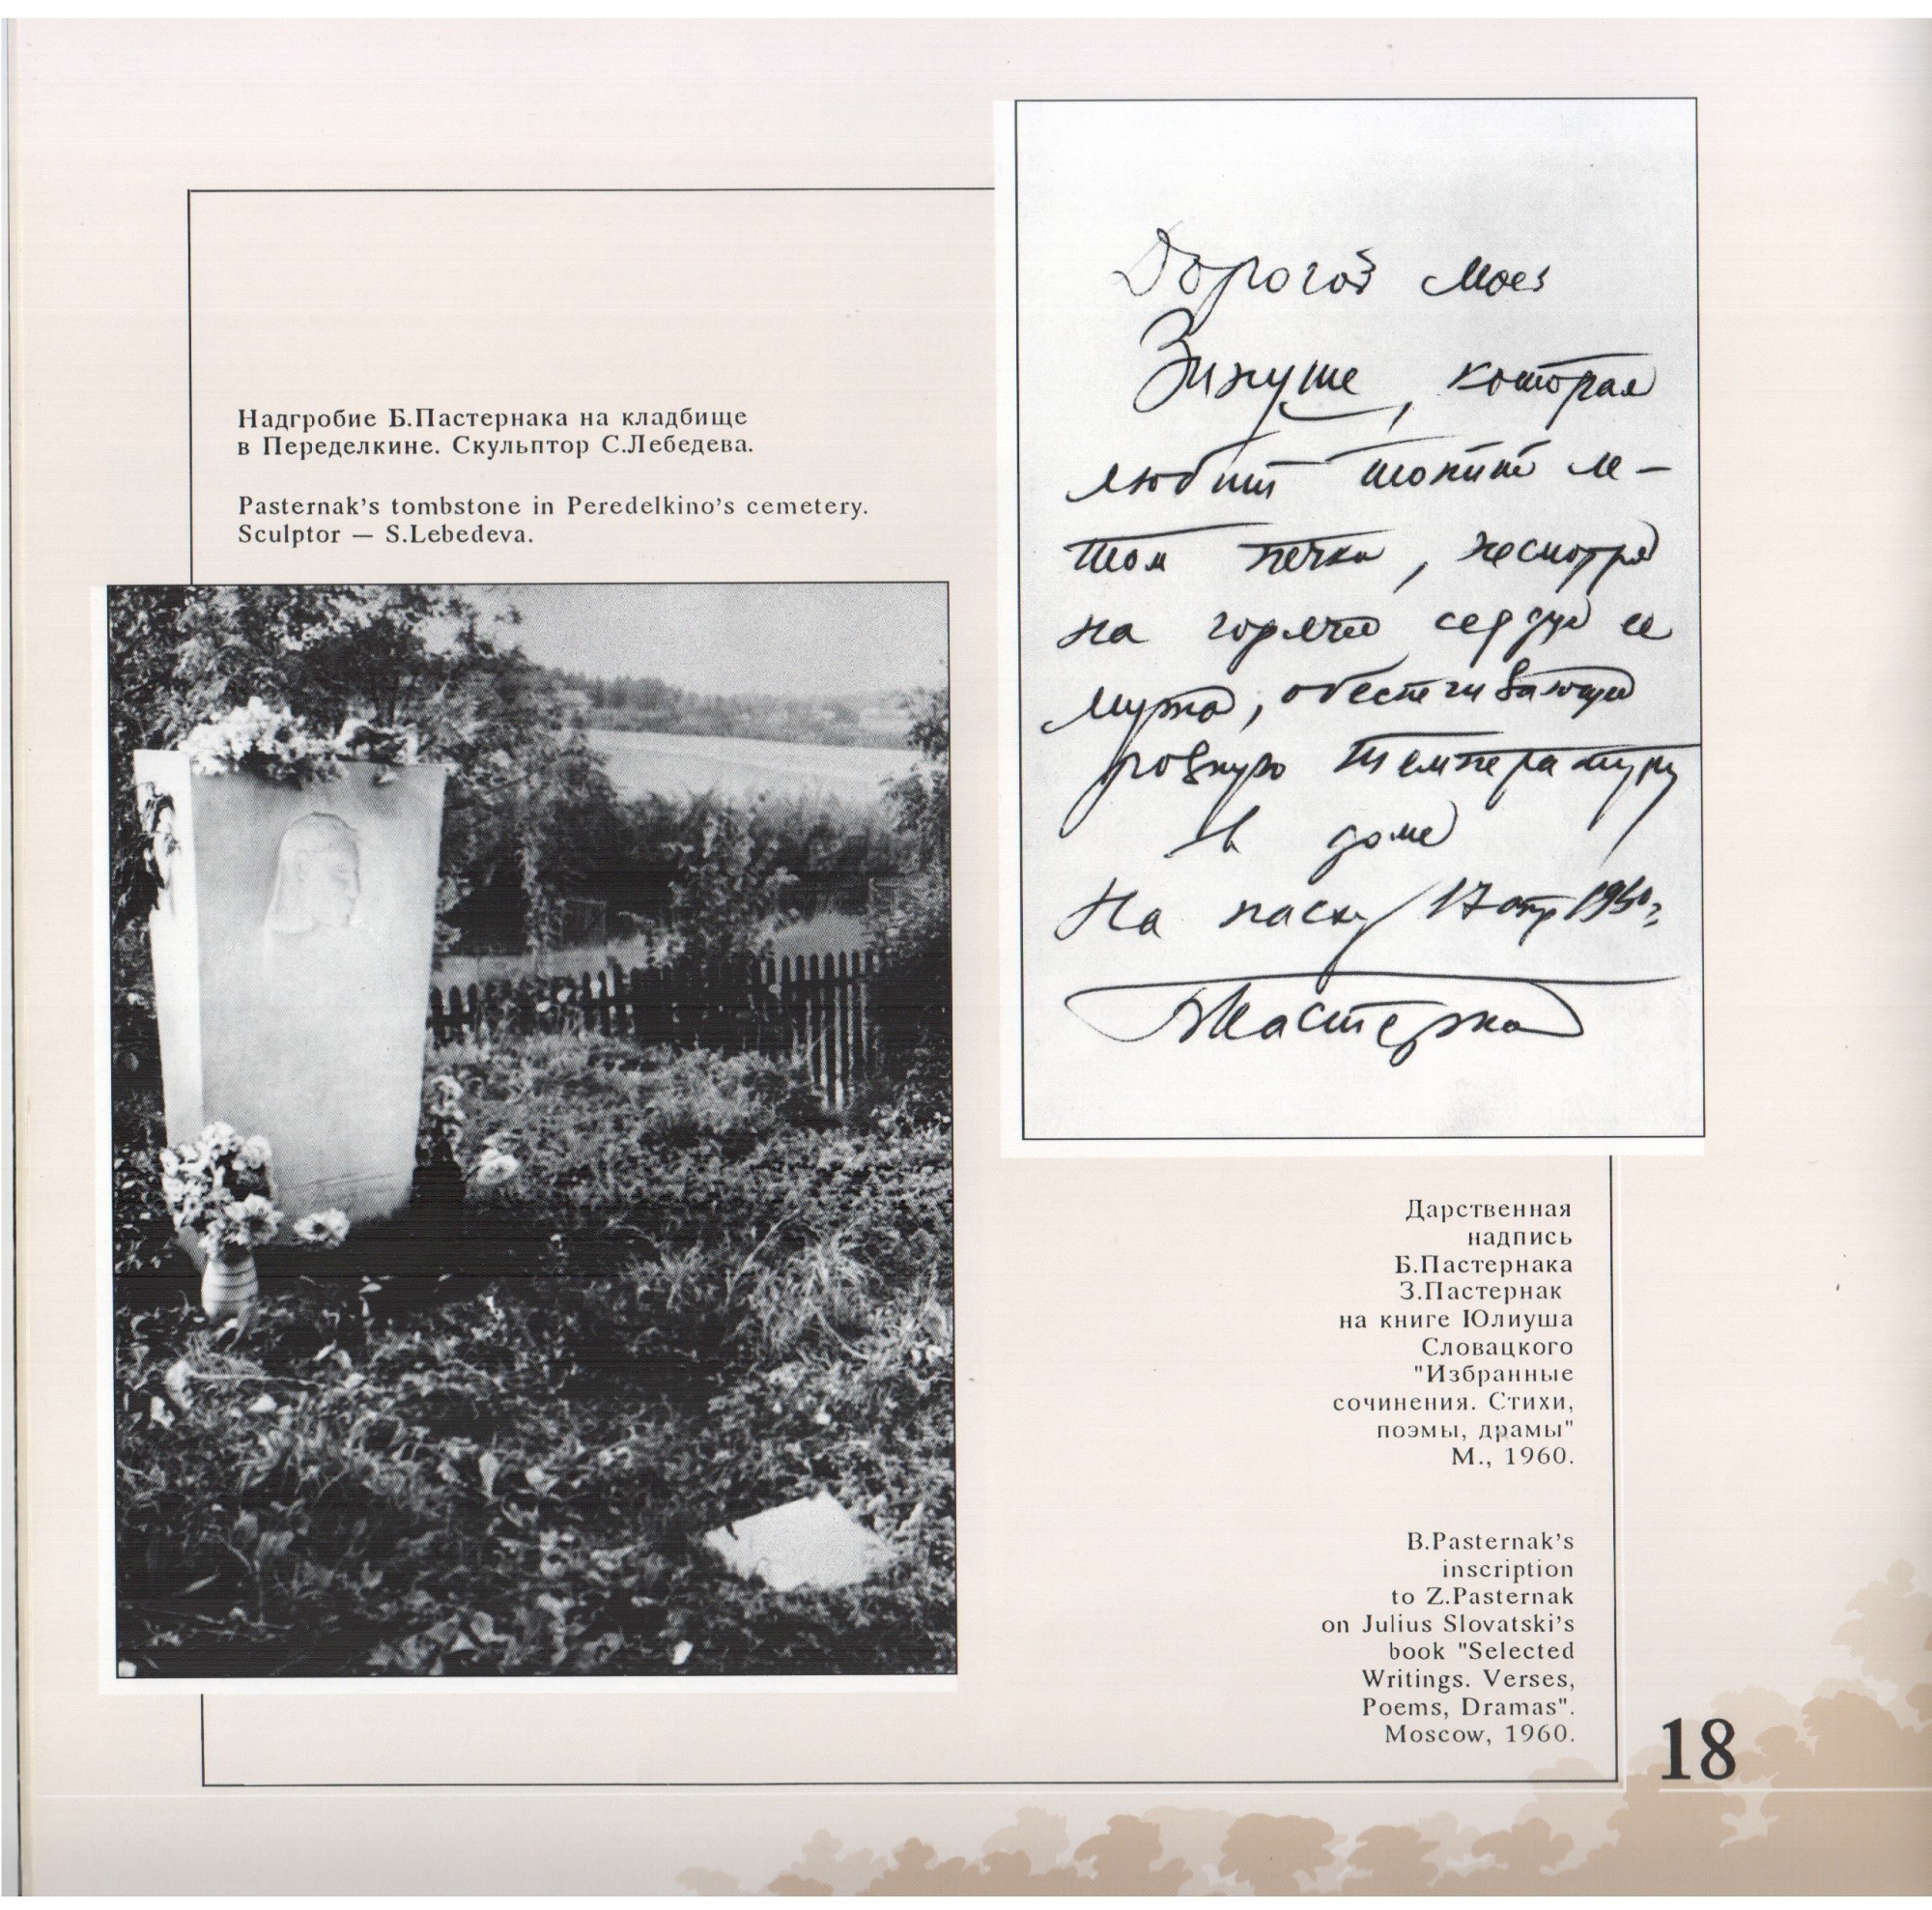 Надгробие Б.Пастернака на кладбище
в Переделкине. Скульптор С.Лебедева.
Pasternak's tombstone in Peredelkino's cemetery.
Sculptor — S.Lebedeva.
Дорогой моей
Зинуше, которая
любит топить ле-
том печки, несмотря
на горячее сердце ее
мужа, обеспечивающее
ровную температуру
в доме
На пасху 17 апр 1960 г.
БПастернак
Дарственная
надпись
Б.Пастернака
З.Пастернак
на книге Юлиуша
Словацкого
"Избранные
сочинения. Стихи,
поэмы, драмы"
М., 1960.
B.Pasternak's
inscription
to Z.Pasternak
on Julius Slovatski's
book "Selected
Writings. Verses,
Poems, Dramas".
Moscow, 1960.
18